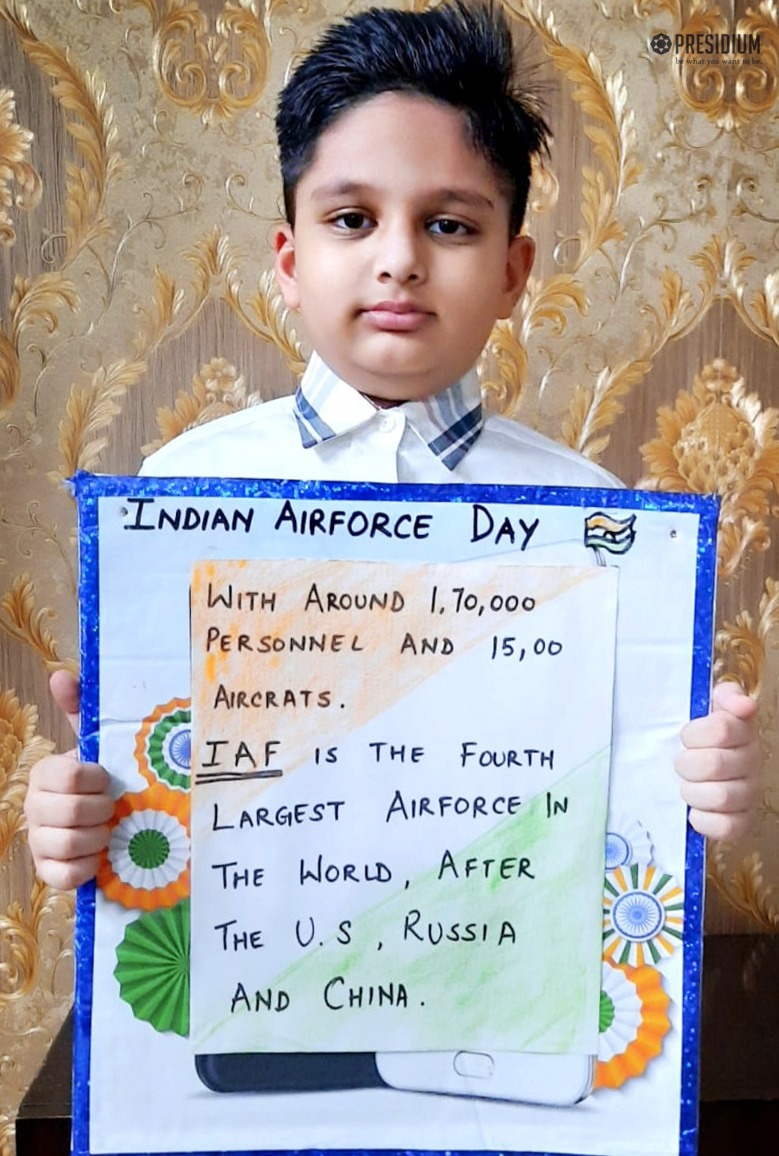 PRESIDIUM
be what you want to be.
INDIAN AIRFORCE DAY
WITH AROUND 1,70,000
PERSONNEL AND 15,00
AIRCRATS.
IAF IS THE FOURTH
LARGEST AIRFORCE IN
THE WORLD, AFTER
THE U.S, RUSSIA
AND CHINA.